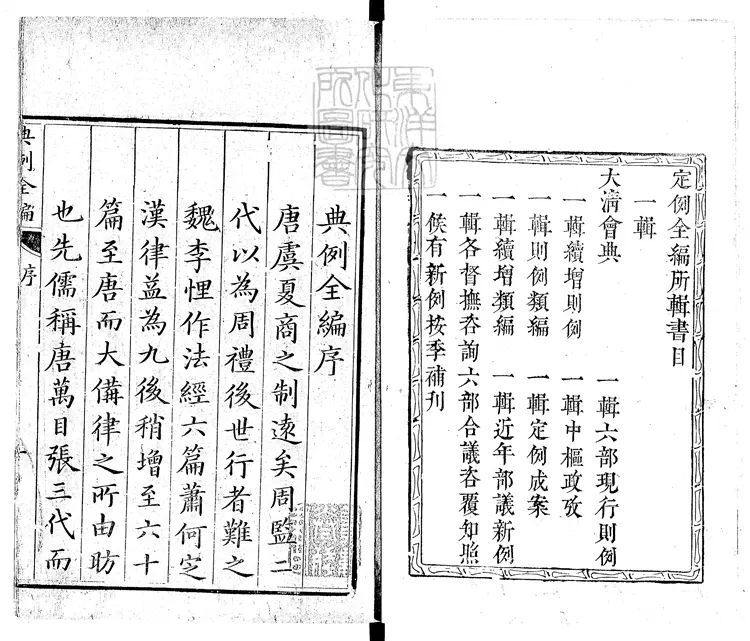 定例全編所輯書目
一輯
大清會典 一輯六部現行則例
一輯續增則例 一輯中樞政攷
一輯則例類編 一輯定例成案
一輯續增類編 一輯近年部議新例
一輯各督撫咨詢六部合議咨覆知照
一候有新例按季補刊
東洋文化研究所圖書
典例全編序
唐虞夏商之制遠矣周監二
代以為周禮後世行者難之
魏李悝作法經六篇蕭何定
漢律益為九後稍增至六十
篇至唐而大備律之所由昉
也先儒稱唐萬目張三代而
典例全編 序